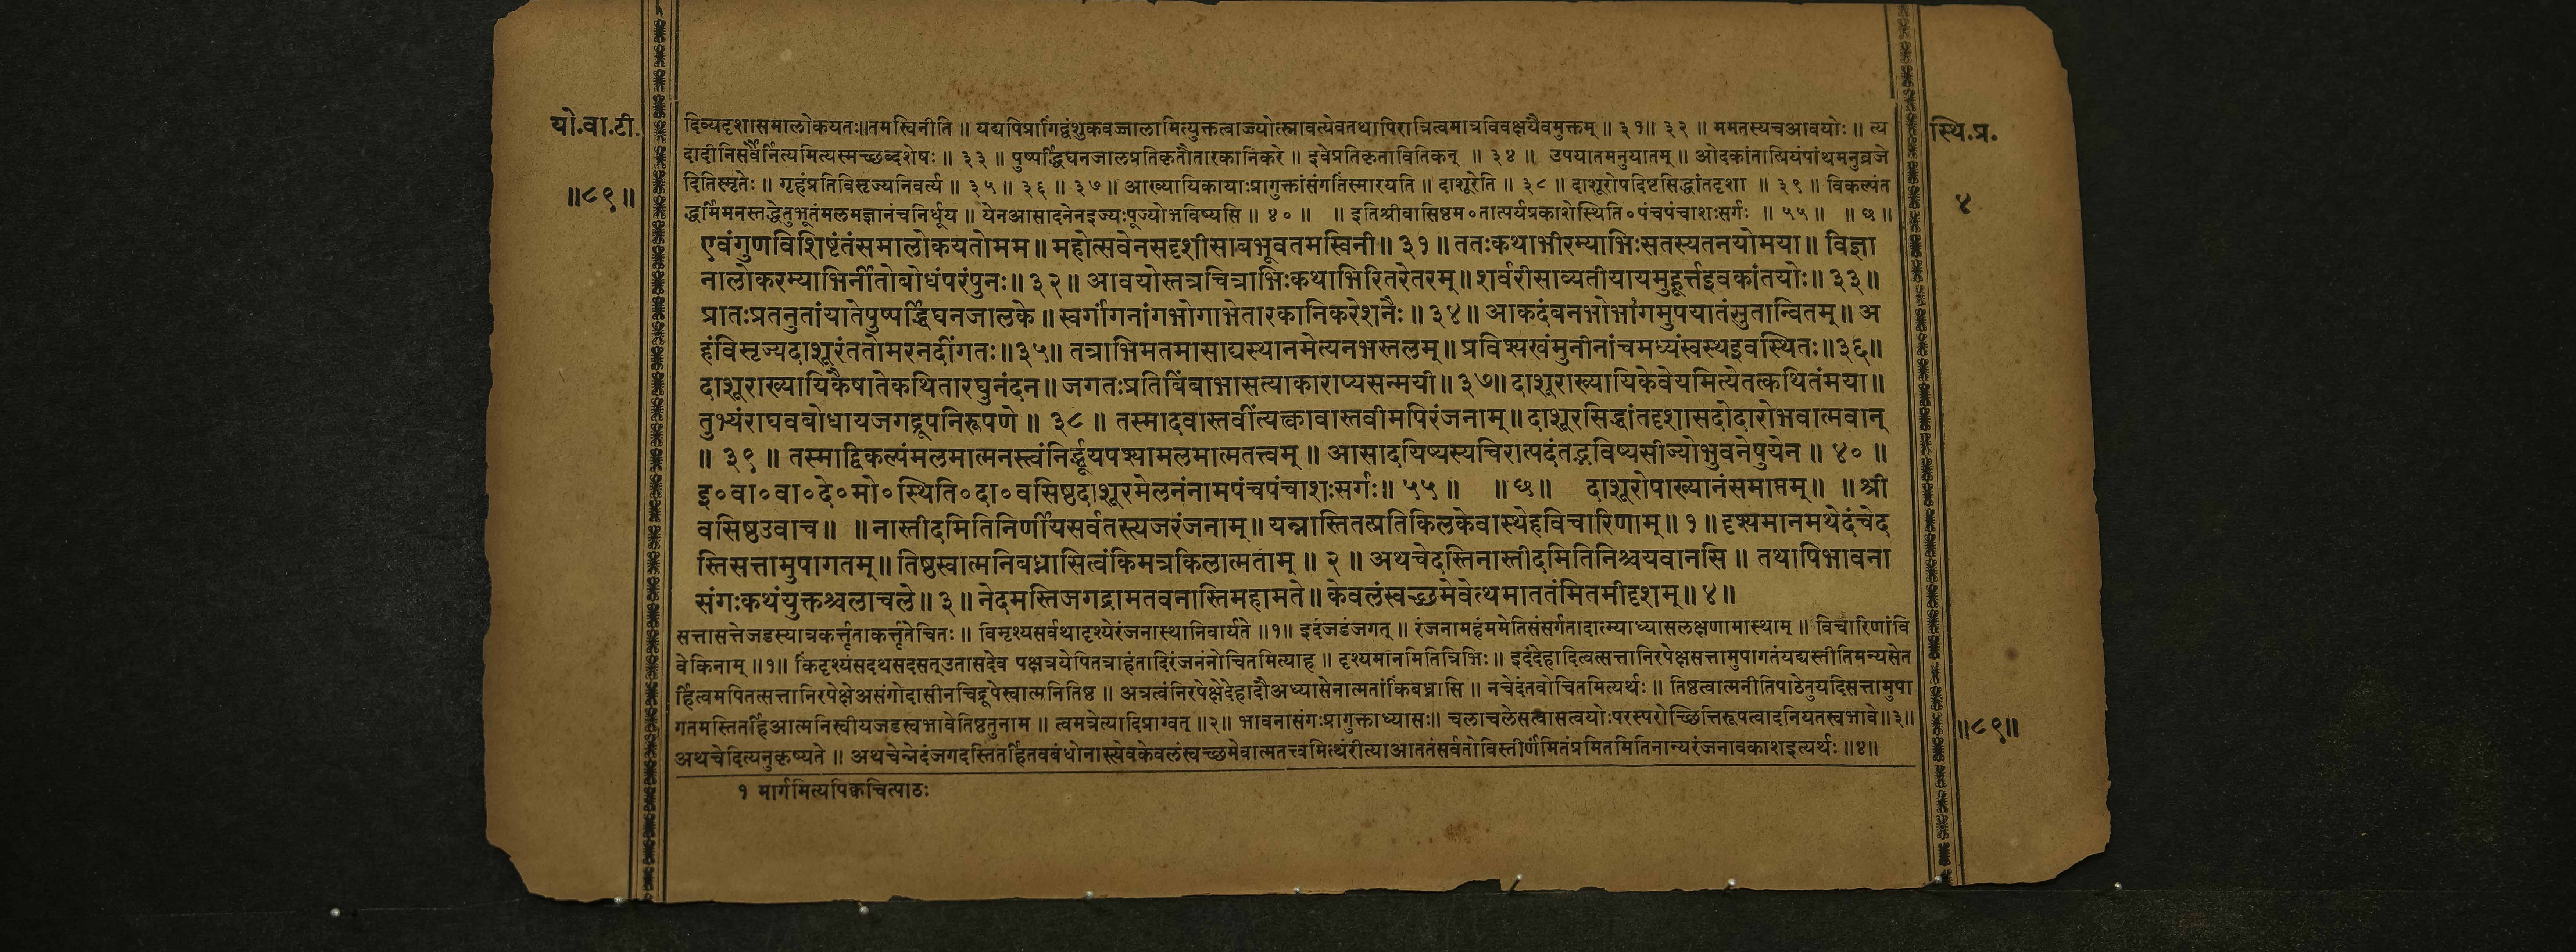 यो.वा.टी.
॥८९॥
स्थि.प्र.
४
दिव्यदृशासमालोकयतः॥तमस्विनीति ॥ यद्यपिप्रागिंद्वंशुकवज्जालामित्युक्तत्वाज्ज्योत्स्नावत्येवतथापिरात्रित्वमात्रविवक्षयैवमुक्तम् ॥ ३१॥ ३२ ॥ ममतस्यचआवयोः ॥ त्य
दादीनिसर्वैर्नित्यमित्यस्मच्छब्दशेषः ॥ ३३ ॥ पुष्पर्द्धिघनजालप्रतिकृतौतारकानिकरे ॥ इवेप्रतिकृतावितिकन् ॥ ३४ ॥ उपयातमनुयातम् ॥ ओदकांतात्प्रियंपांथमनुव्रजे
दितिस्मृतेः ॥ गृहंप्रतिविसृज्यनिवर्त्य ॥ ३५ ॥ ३६ ॥ ३७ ॥ आख्यायिकायाःप्रागुक्तांसंगतिंस्मारयति ॥ दाशूरेति ॥ ३८ ॥ दाशूरोपदिष्टसिद्धांतदृशा ॥ ३९ ॥ विकल्पंत
द्धर्मिमनस्तद्धेतुभूतंमलमज्ञानंचनिर्धूय ॥ येनआसादनेनइज्यःपूज्योभविष्यसि ॥ ४० ॥ ॥ इतिश्रीवासिष्ठम०तात्पर्यप्रकाशेस्थिति०पंचपंचाशःसर्गः ॥ ५५ ॥ ॥ छ ॥
एवंगुणविशिष्टंतंसमालोकयतोमम ॥ महोत्सवेनसदृशीसाबभूवतमस्विनी ॥ ३१ ॥ ततःकथाभीरम्याभिःसतस्यतनयोमया ॥ विज्ञा
नालोकरम्याभिर्नीतोबोधंपरंपुनः ॥ ३२ ॥ आवयोस्तत्रचित्राभिःकथाभिरितरेतरम् ॥ शर्वरीसाव्यतीयायमुहूर्त्तइवकांतयोः ॥ ३३ ॥
प्रातःप्रतनुतांयातेपुष्पर्द्धिघनजालके ॥ स्वर्गांगनांगभोगाभेतारकानिकरेशनैः ॥ ३४ ॥ आकदंबनभोभांगमुपयातंसुतान्वितम् ॥ अ
हंविसृज्यदाशूरंततोमरनदींगतः ॥३५॥ तत्राभिमतमासाद्यस्थानमेत्यनभस्तलम् ॥ प्रविश्यखंमुनीनांचमध्यंस्वस्थइवस्थितः ॥३६॥
दाशूराख्यायिकैषातेकथितारघुनंदन ॥ जगतःप्रतिबिंबाभासत्याकाराप्यसन्मयी ॥ ३७॥ दाशूराख्यायिकेवेयमित्येतत्कथितंमया ॥
तुभ्यंराघवबोधायजगद्रूपनिरूपणे ॥ ३८ ॥ तस्मादवास्तवींत्यक्त्वावास्तवीमपिरंजनाम् ॥ दाशूरसिद्धांतदृशासदोदारोभवात्मवान्
॥ ३९ ॥ तस्माद्विकल्पंमलमात्मनस्त्वंनिर्द्धूयपश्यामलमात्मतत्त्वम् ॥ आसादयिष्यस्यचिरात्पदंतद्भविष्यसीज्योभुवनेषुयेन ॥ ४० ॥
इ०वा०वा०दे०मो०स्थिति०दा०वसिष्ठदाशूरमेलनंनामपंचपंचाशःसर्गः ॥ ५५ ॥ ॥ छ ॥ दाशूरोपाख्यानंसमाप्तम् ॥ ॥ श्री
वसिष्ठउवाच ॥ ॥ नास्तीदमितिनिर्णीयसर्वतस्त्यजरंजनाम् ॥ यन्नास्तितत्प्रतिकिलकेवास्थेहविचारिणाम् ॥ १ ॥ दृश्यमानमथेदंचेद
स्तिसत्तामुपागतम् ॥ तिष्ठस्वात्मनिबध्नासित्वंकिमत्रकिलात्मताम् ॥ २ ॥ अथचेदस्तिनास्तीदमितिनिश्चयवानसि ॥ तथापिभावना
संगःकथंयुक्तश्चलाचले ॥ ३ ॥ नेदमस्तिजगद्रामतवनास्तिमहामते ॥ केवलंस्वच्छमेवेत्थमाततंमितमीदृशम् ॥ ४ ॥
सत्तासत्तेजडस्यात्रकर्त्तृताकर्त्तृतेचितः ॥ विमृश्यसर्वथादृश्येरंजनास्थानिवार्यते ॥१॥ इदंजडंजगत् ॥ रंजनामहंममेतिसंसर्गतादात्म्याध्यासलक्षणामास्थाम् ॥ विचारिणांवि
वेकिनाम् ॥१॥ किंदृश्यंसदथसदसत्उतासदेव पक्षत्रयेपितत्राहंतादिरंजनंनोचितमित्याह ॥ दृश्यमानमितित्रिभिः ॥ इदंदेहादित्वत्सत्तानिरपेक्षसत्तामुपागतंयद्यस्तीतिमन्यसेत
र्हित्वमपितत्सत्तानिरपेक्षेअसंगोदासीनचिद्रूपेस्वात्मनितिष्ठ ॥ अत्रत्वंनिरपेक्षेदेहादौअध्यासेनात्मतांकिंबध्नासि ॥ नचेदंतवोचितमित्यर्थः ॥ तिष्ठत्वात्मनीतिपाठेतुयदिसत्तामुपा
गतमस्तितर्हिआत्मनिस्वीयजडस्वभावेतिष्ठतुनाम ॥ त्वमत्रेत्यादिप्राग्वत् ॥२॥ भावनासंगःप्रागुक्ताध्यासः॥ चलाचलेसत्वासत्वयोःपरस्परोच्छित्तिरूपत्वादनियतस्वभावे॥३॥
अथचेदित्यनुकृष्यते ॥ अथचेन्नेदंजगदस्तितर्हितवबंधोनास्त्येवकेवलंस्वच्छमेवात्मतत्त्वमित्थंरीत्याआततंसर्वतोविस्तीर्णमितंप्रमितमितिनान्यरंजनावकाशइत्यर्थः ॥४॥
॥८९॥
१ मार्गमित्यपिक्वचित्पाठः